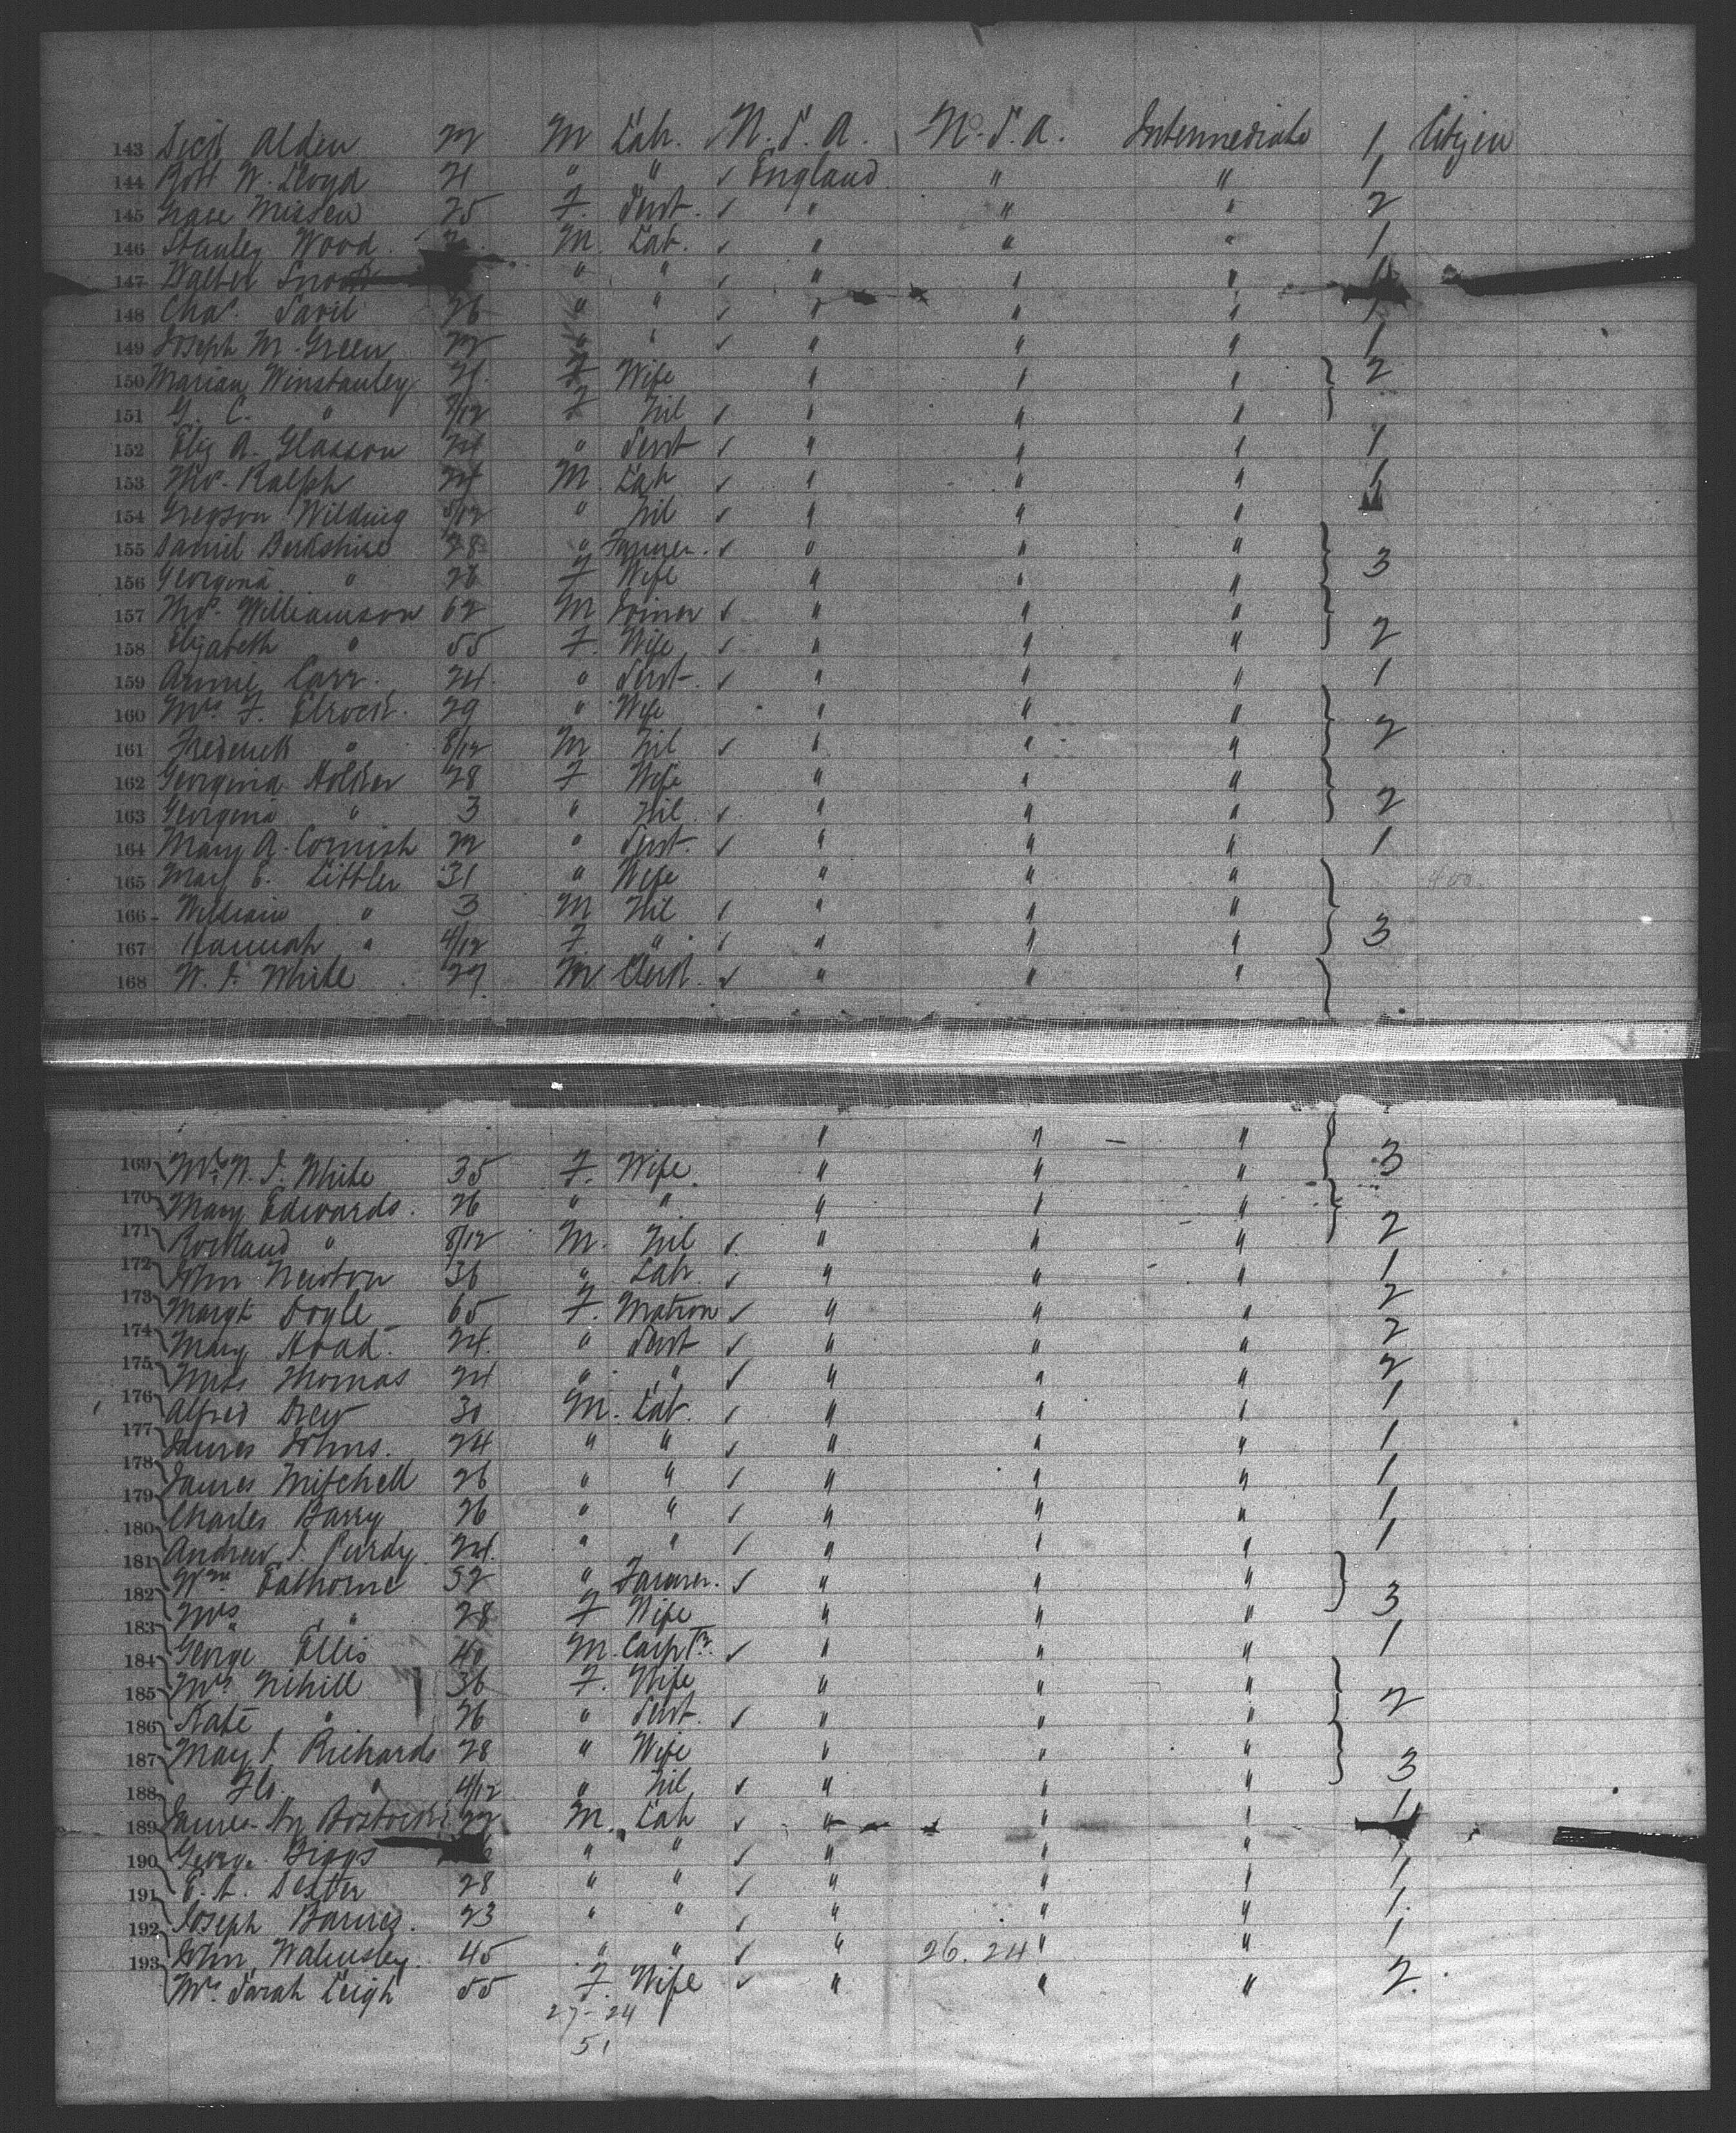 143 Alden 22 M Lab. U.S.A. U.S.A. Intermediate 1 Citizen
144 Robt W. Lloyd 21 " " England " " 1
145 Missen 25 F. Servt. " " " 2
146 Stanley Wood. M. Lab. " " " 1
147 Walter Snook " " " " " 1
148 Chas. Savil 26 " " " " " 1
149 Joseph M. Green 22 " " " " " 1
150 Marian Winstanley 21 F Wife " " " 2
151 G. C. " 7/12 F Nil " " "
152 Eliz A. Glasson 24 " Servt " " " 1
153 Thos. Ralph 24 M. Lab " " " 1
154 Gregson Wilding 5/12 " Nil " " "
155 Daniel Berkshire 28 " Farmer. " " " 3
156 Georgina " 26 F Wife " " "
157 Thos. Williamson 62 M Joiner " " "
158 Elizabeth " 55 F. Wife " " " 2
159 Annie Carr. 24. " Servt. " " " 1
160 Mrs F. 29 " Wife " " "
161 Frederick " 8/12 M Nil " " " 2
162 Georgina Holder 28 F Wife " " "
163 Georgina " 3 " Nil " " " 2
164 Mary A. Cornish 22 " Servt. " " " 1
165 Mary E. Littler 31 " Wife " " "
166 William " 3 M Nil " " "
167 Hannah " 4/12 F. " " " " 3
168 W. J. White 27 M Clerk. " " "
" " "
169 Mrs W. J. White 35 F. Wife. " " " 3
170 Mary Edwards. 26 " " " " "
171 " 8/12 M. Nil " " " 2
172 John Newton 36 " Lab. " " " 1
173 Margt Doyle 65 F. Matron " " " 2
174 Mary Hoad. 24. " Servt " " " 2
175 Miss Thomas 24 " " " " " 2
176 Alfred Drew 30 M. Lab. " " " 1
177 James Johns. 24 " " " " " 1
178 James Mitchell 26 " " " " " 1
179 Charles Barry 26 " " " " " 1
180 Andrew J. Purdy 24. " " " " " 1
181 Wm Eathorne 32 " Farmer. " " "
182 Mrs " 28 F Wife " " " 3
183 George Ellis 40 M. Carptr. " " " 1
184 Mrs Nihill 36 F. Wife " " "
185 Kate " 26 " Servt. " " " 2
186 May J Richards 28 " Wife " " "
187 Flo. " 4/12 " Nil " " " 3
188 James Hy Bostock 22 M. Lab " " " 1
189 George Biggs " " " " " 1
190 E. A. Dexter 28 " " " " " 1
191 Joseph Barnes. 23 " " " " " 1.
192 John Walmsley. 45 " " " 26. 24 " " 1
193 Mrs. Sarah Leigh 55 F. Wife " " " 2.
27-24
51